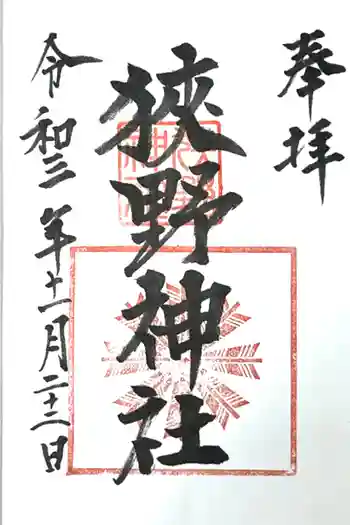 奉拝
狹野神社
令和二年十一月二十二日